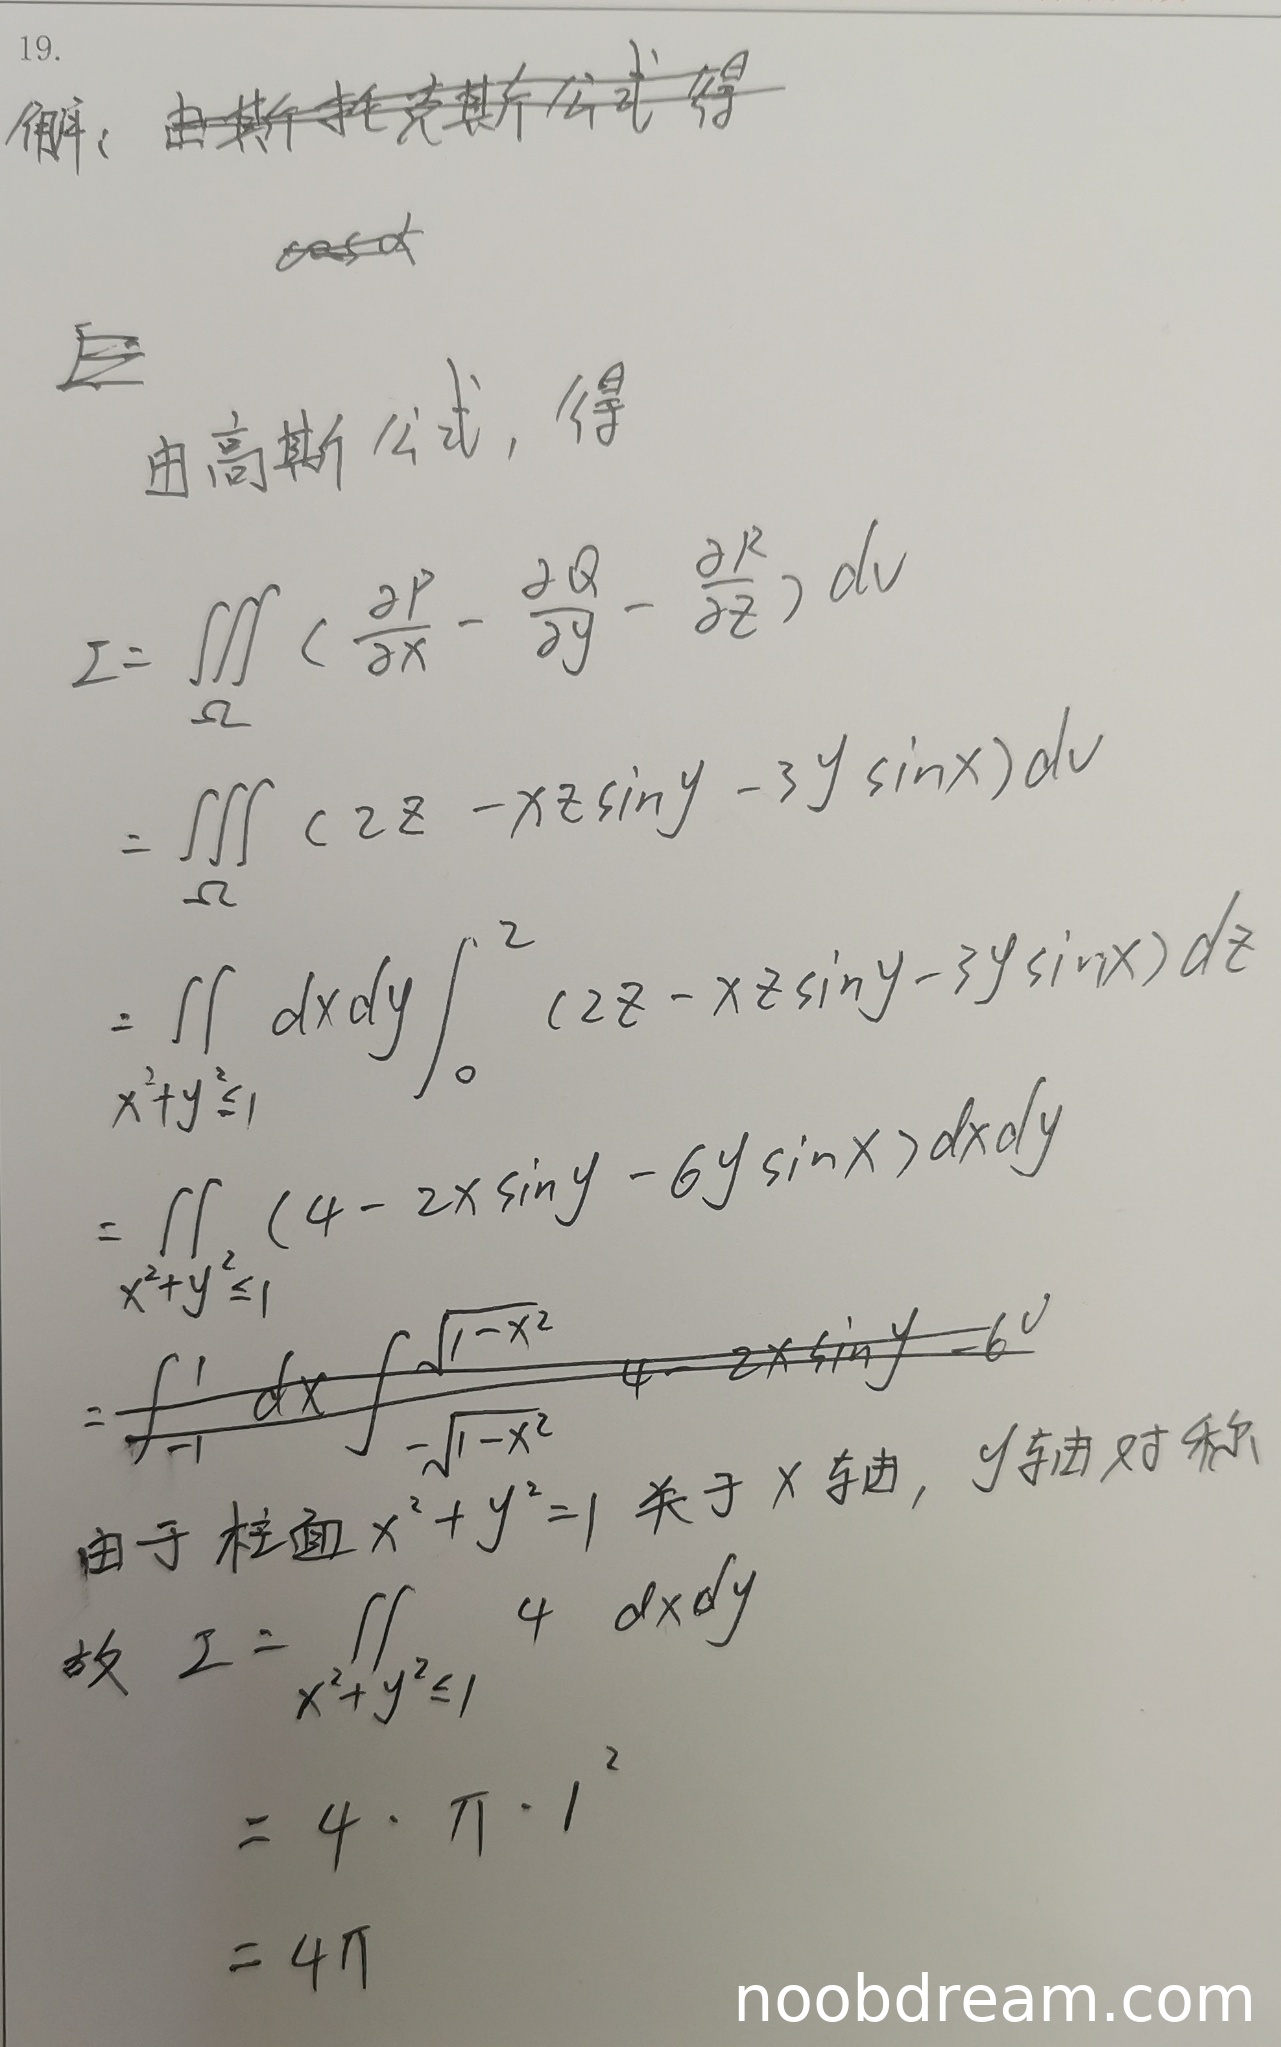 19.
解: 由斯托克斯公式得
cosα
由高斯公式, 得
I = ∭_Ω ( ∂P/∂x - ∂Q/∂y - ∂R/∂z ) dv
= ∭_Ω (2z - xz siny - 3y sinx) dv
= ∬_{x²+y²≤1} dxdy ∫_0^2 (2z - xz siny - 3y sinx) dz
= ∬_{x²+y²≤1} (4 - 2x siny - 6y sinx) dxdy
= ∫_{-1}^{1} dx ∫_{-√(1-x²)}^{√(1-x²)} 4 - 2x siny - 6y
由于柱面 x²+y²=1 关于 x 轴, y 轴对称
故 I = ∬_{x²+y²≤1} 4 dxdy
= 4 · π · 1²
= 4π
noobdream.com